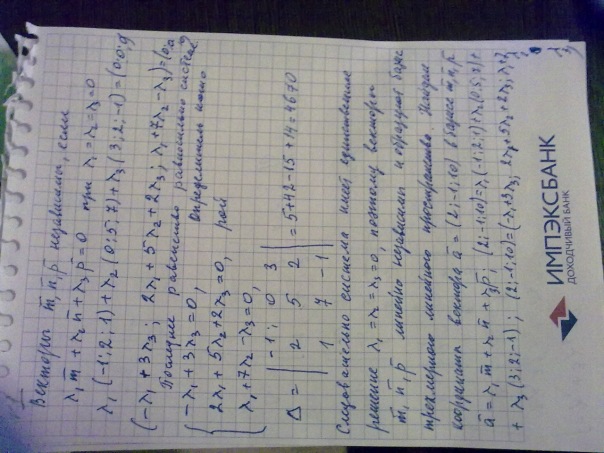 Векторы m̅, n̅, p̅ независимы, если
λ₁m̅ + λ₂n̅ + λ₃p̅ = 0 при λ₁ = λ₂ = λ₃ = 0
λ₁(-1; 2; 1) + λ₂(0; 5; 7) + λ₃(3; 2; -1) = (0; 0; 0
(-λ₁ + 3λ₃; 2λ₁ + 5λ₂ + 2λ₃; λ₁ + 7λ₂ - λ₃) = (0;0
Последнее равенство равносильно системе
{ -λ₁ + 3λ₃ = 0,
2λ₁ + 5λ₂ + 2λ₃ = 0,
λ₁ + 7λ₂ - λ₃ = 0,
определитель
рой
Δ = | -1; 0 3
2 5 2
1 7 -1 | = 5 + 42 - 15 + 14 = 46 ≠ 0
Следовательно система имеет единственное
решение λ₁ = λ₂ = λ₃ = 0, поэтому векторы
m̅, n̅, p̅ линейно независимы и образуют базис
трехмерного линейного пространства. Найдем
координаты вектора a̅ = (2; -1; 10) в базисе m̅, n̅, p̅
a̅ = λ₁m̅ + λ₂n̅ + λ₃p̅; (2; -1; 10) = λ(-1; 2; 1) + λ₂(0; 5; 7) +
+ λ₃(3; 2; -1); (2; -1; 10) = (-λ₁ + 3λ₃; 2λ₁ + 5λ₂ + 2λ₃; λ₁ + 7
ИМПЭКСБАНК
ДОХОДЧИВЫЙ БАНК